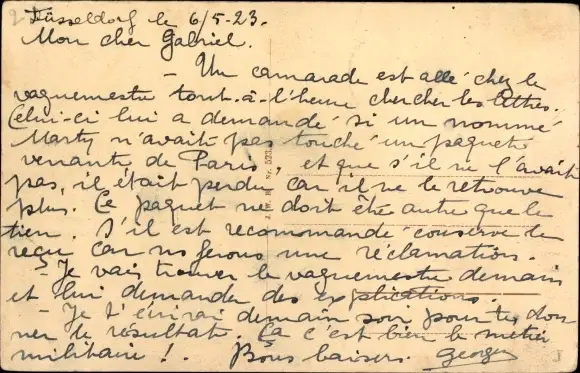 Düsseldorf le 6/5-23.
Mon cher Gabriel.
- Un camarade est allé chez le
vaguemestre tout-à-l'heure chercher les lettres.
Celui-ci lui a demandé si un nommé
Marty n'avait pas touché un paquet
venante de Paris, et que s'il ne l'avait
pas, il était perdu, car il ne le retrouve
plus. Ce paquet ne doit être autre que le
tien. S'il est recommandé conserve le
reçu car ns ferons une réclamation.
- Je vais trouver le vaguemestre demain
et lui demander des explications.
- Je t'écrirai demain soir pour te don
ner le résultat. Ça c'est bien le métier
militaire !. Bons baisers. Georges